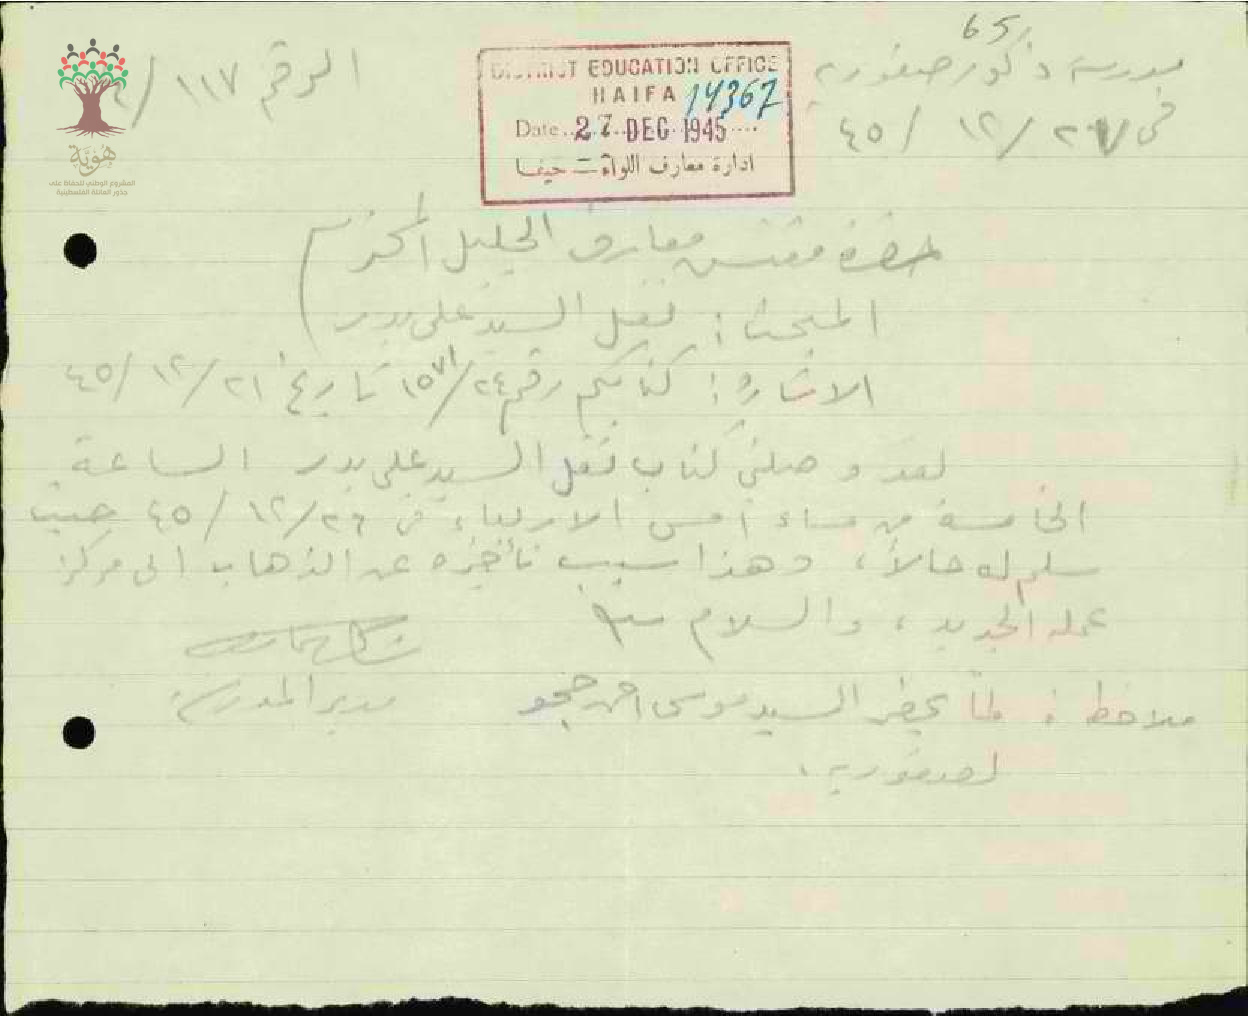 65
مدرسة ذكور صفورية
في ٢٧/ ١٢/ ٤٥
الرقم ١١٧/
DISTRICT EDUCATION OFFICE
HAIFA 14367
Date 27 DEC 1945
ادارة معارف اللواء – حيفا
هوية
المشروع الوطني للحفاظ على
جذور العائلة الفلسطينية
حضرة مفتش معارف الجليل المحترم
المبحث : نقل السيد علي بدر
الاشارة : كتابكم رقم ٢٤/١٥٧١ تاريخ ٢١/ ١٢/ ٤٥
لقد وصلني كتاب نقل السيد علي بدر الساعة
الخامسة من مساء أمس الاربعاء في ٢٦/ ١٢/ ٤٥ حيث
سلم له حالاً، وهذا سبب تأخيره عن الذهاب الى مركز
عمله الجديد، والسلام
مدير المدرسة
ملاحظة : لمّا يحضر السيد موسى احمد
لصفورية.